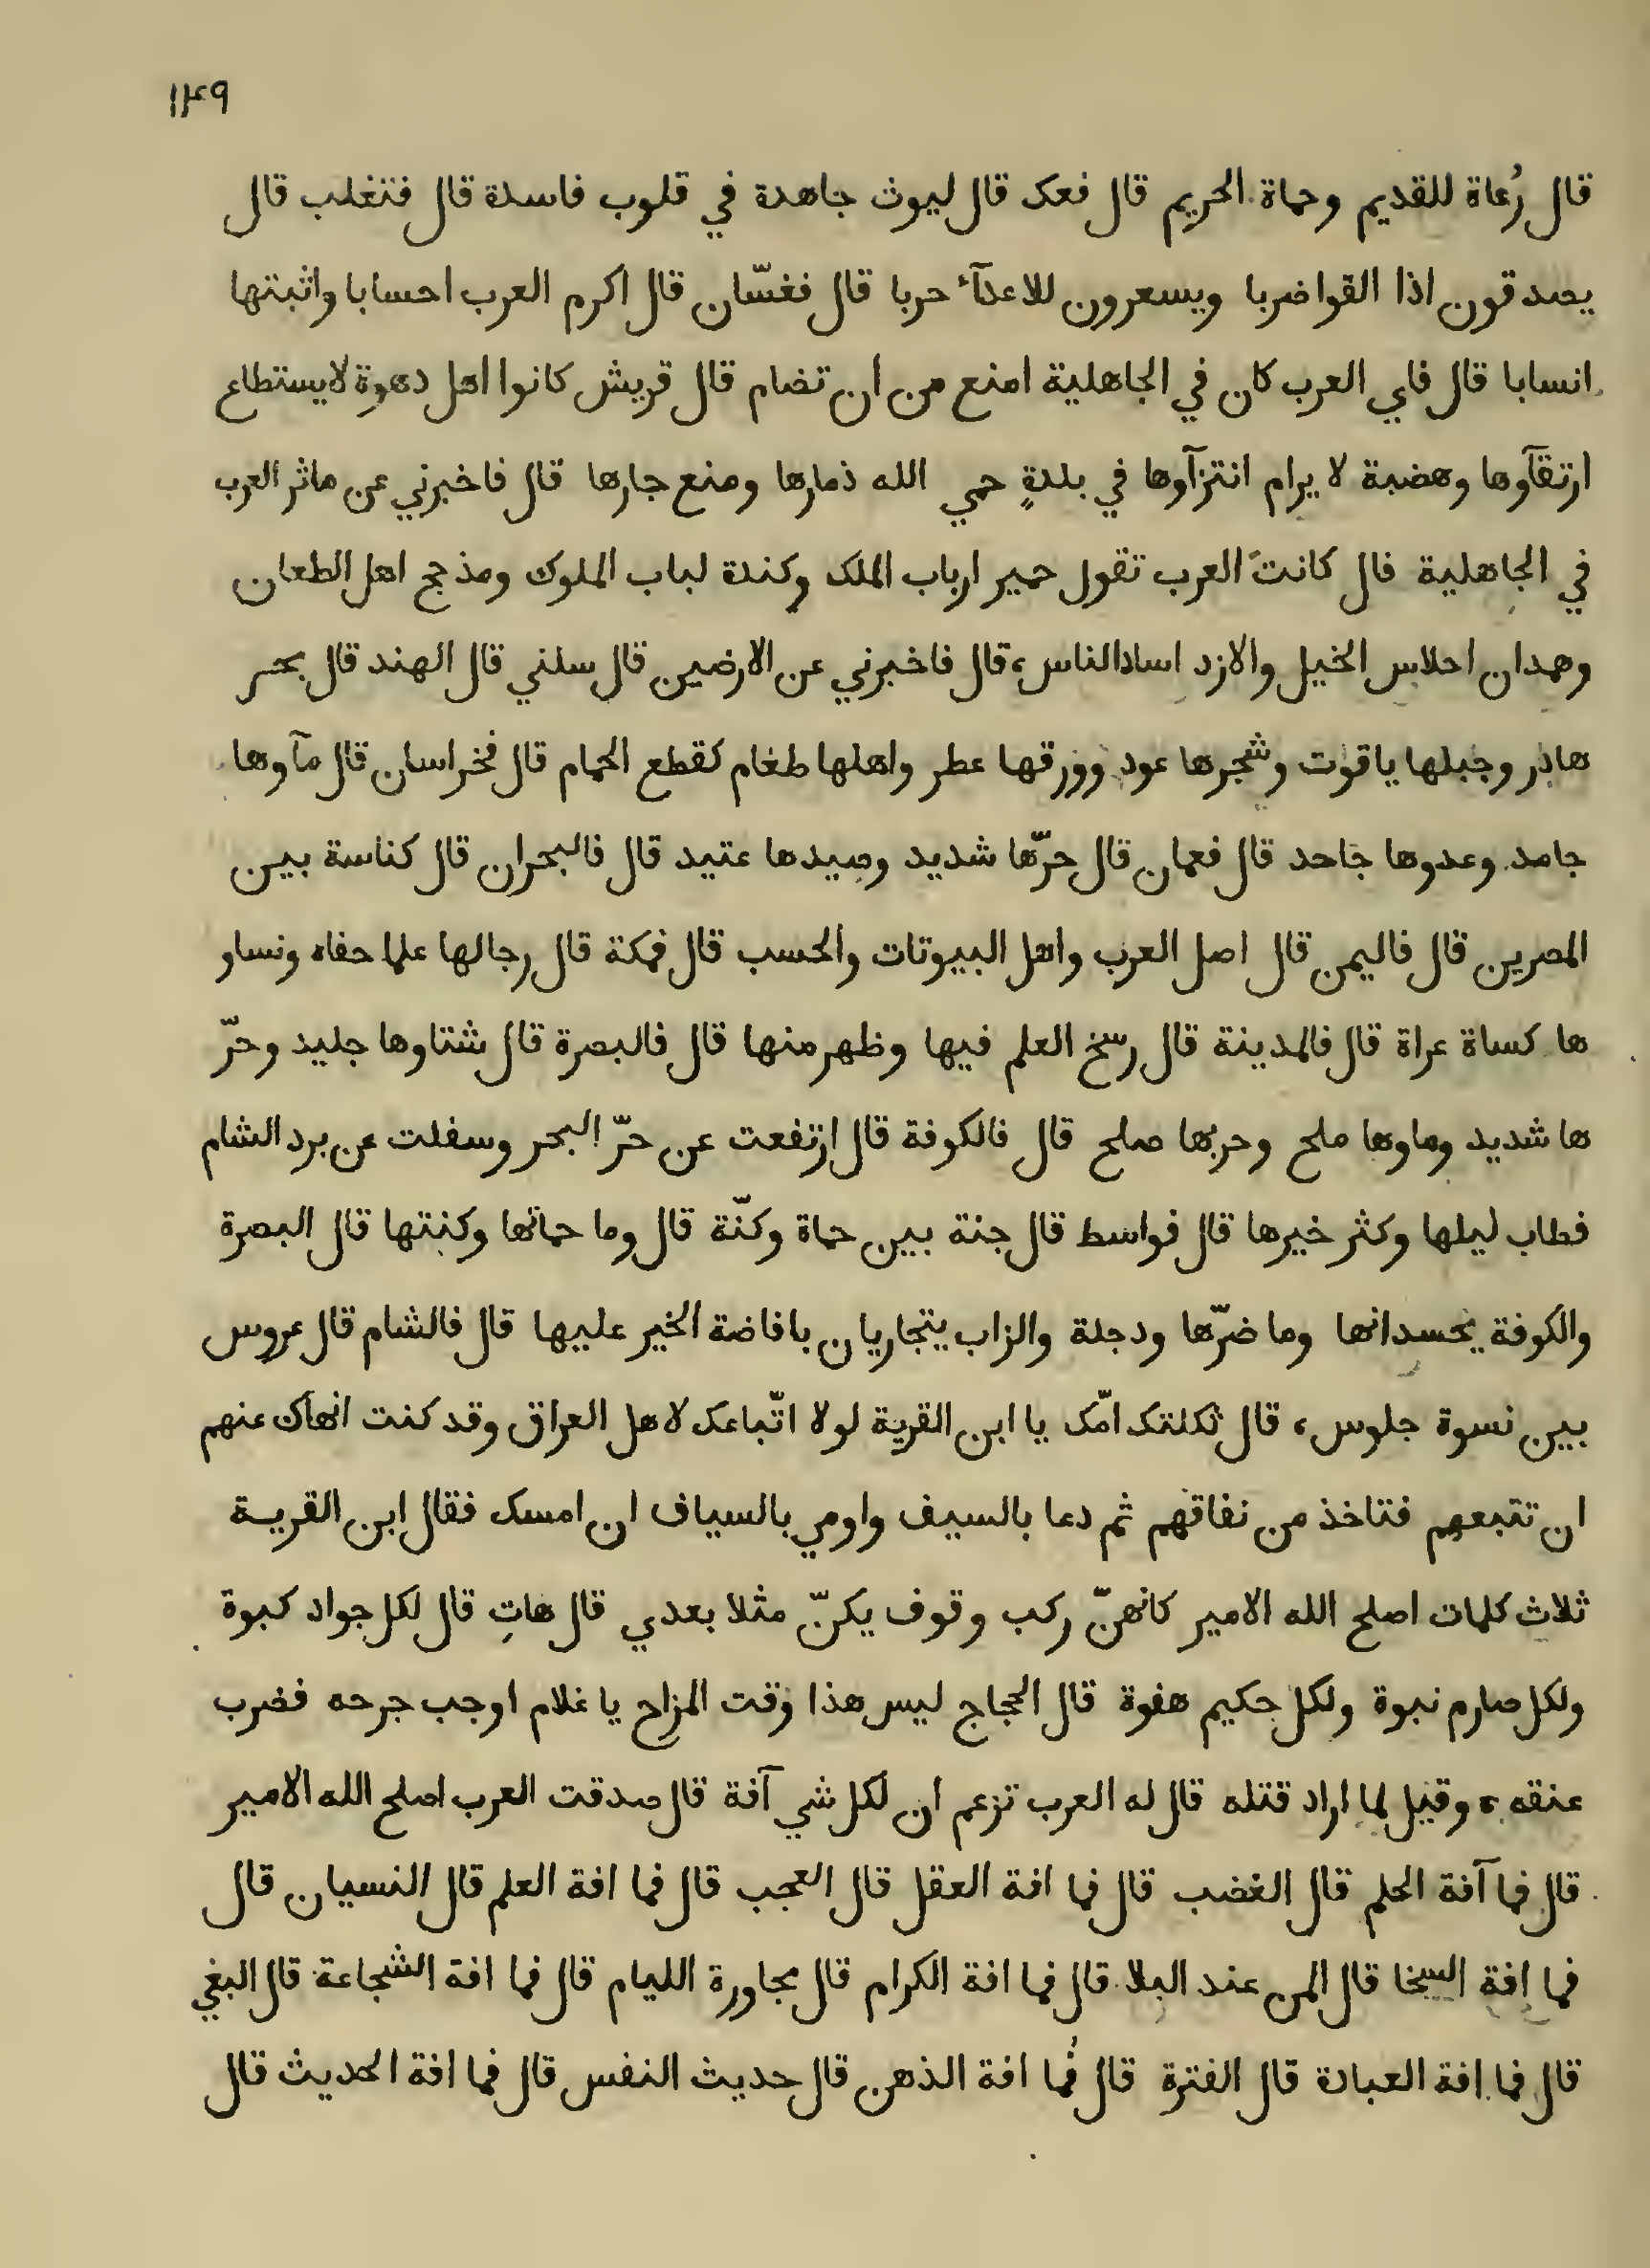 ١٢٩
قال رُعاة للقديم وحماة الحريم قال فعك قال ليوث جاهدة في قلوب فاسدة قال فتغلب قال
يصدقون اذا القوا ضربا ويسعرون للاعدآء حربا قال فغسّان قال اكرم العرب احسابا واثبتها
انسابا قال فاي العرب كان في الجاهلية امنع من ان تضام قال قريش كانوا اهل دهوةٍ لا يستطاع
ارتقآوها وهضبة لا يرام انتزآوها في بلدةٍ حمي الله ذمارها ومنع جارها قال فاخبرني عن ماثر العرب
في الجاهلية قال كانت العرب تقول حمير ارباب الملك وكندة لباب الملوك ومذحج اهل الطعان
وهمدان احلاس الخيل والازد اساد الناس، قال فاخبرني عن الارضين قال سلني قال الهند قال بحر
هادر وجبلها ياقوت وشجرها عود وورقها عطر واهلها طغام كقطع الحمام قال فخراسان قال مآوها
جامد وعدوها جاحد قال فعمان قال حرّها شديد وصيدها عتيد قال فالبحران قال كناسة بين
المصرين قال فاليمن قال اصل العرب واهل البيوتات والحسب قال فمكة قال رجالها علما حفاه ونساو
ها كساة عراة قال فالمدينة قال رسخ العلم فيها وظهر منها قال فالبصرة قال شتاوها جليد وحرّ
ها شديد وماوها ملح وحربها صلح قال فالكوفة قال ارتفعت عن حرّ البحر وسفلت عن برد الشام
فطاب ليلها وكثر خيرها قال فواسط قال جنة بين حماة وكنّة قال وما حماتها وكنتها قال البصرة
والكوفة يحسدانها وما ضرّها ودجلة والزاب يتجاريان بافاضة الخير عليها قال فالشام قال عروس
بين نسوة جلوس، قال ثكلتك امّك يا ابن القرية لولا اتّباعك لاهل العراق وقد كنت انهاك عنهم
ان تتبعهم فتاخذ من نفاقهم ثم دعا بالسيف واومي بالسياف ان امسك فقال ابن القرية
ثلاث كلمات اصلح الله الامير كانهنّ ركب وقوف يكنّ مثلا بعدي قال هاتِ قال لكل جواد كبوة
ولكل صارم نبوة ولكل حكيم هفوة قال الحجاج ليس هذا وقت المزاح يا غلام اوجب جرحه فضرب
عنقه، وقيل لما اراد قتله قال له العرب تزعم ان لكل شي آفة قال صدقت العرب اصلح الله الامير
قال فما آفة الحلم قال الغضب قال فما افة العقل قال العجب قال فما افة العلم قال النسيان قال
فما افة السخا قال المن عند البلا قال فما افة الكرام قال مجاورة الليام قال فما افة الشجاعة قال البغي
قال فما افة العبادة قال الفترة قال فما افة الذهن قال حديث النفس قال فما افة الحديث قال